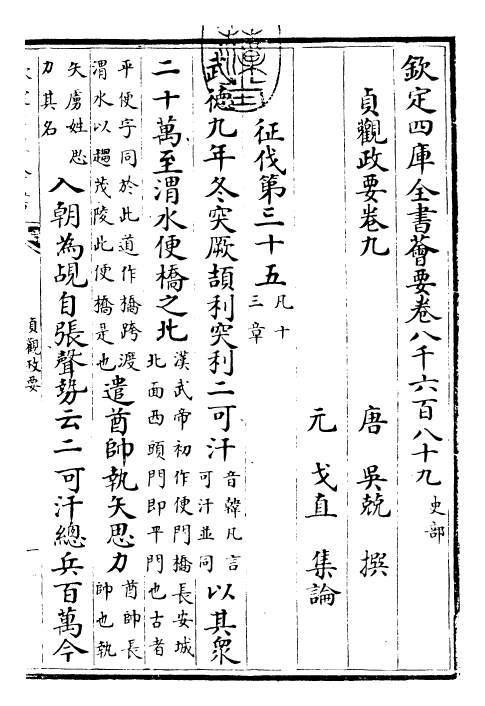 欽定四庫全書薈要卷八千六百八十九 史部
貞觀政要卷九 唐 吳兢 撰
元 戈直 集論
征伐第三十五 凡十三章
武德九年冬突厥頡利突利二可汗 音韓凡言可汗並同 以其衆
二十萬至渭水便橋之北 漢武帝初作便門橋長安城北面西頭門即平門也古者
平便字同於此道作橋跨渡渭水以趨茂陵此便橋是也 遣酋帥執矢思力 酋帥長帥也執
矢虜姓思力其名 入朝為覘自張聲勢云二可汗總兵百萬今
貞觀政要
一